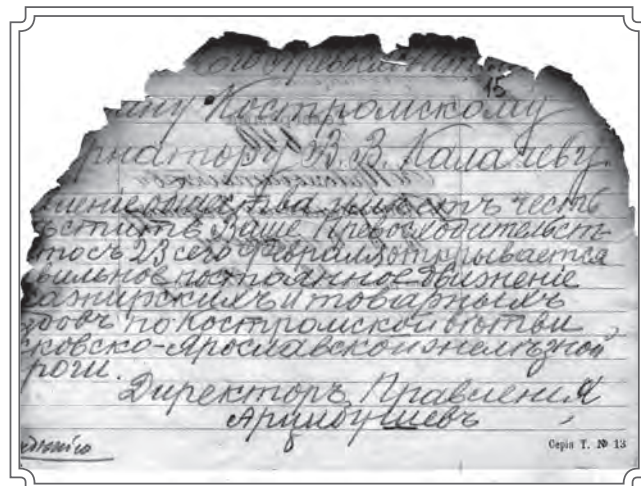 15
ину Костромскому
рнатору В. В. Калачеву.
ление общества имѣетъ честь
ѣстить Ваше Превосходительст
что съ 23 сего Февраля открывается
вильное постоянное движеніе
сажирскихъ и товарныхъ
здовъ по Костромской вѣтви
сковско-Ярославской желѣзной
роги.
Директоръ Правленія
Арцыбушевъ
Серія Т. № 13